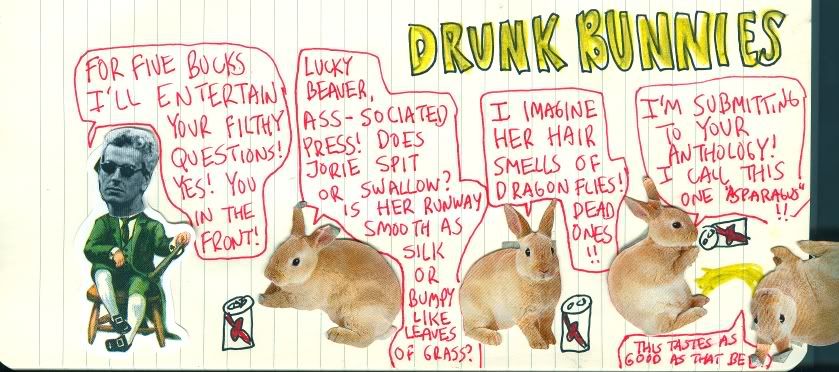 DRUNK BUNNIES
FOR FIVE BUCKS
I'LL ENTERTAIN
YOUR FILTHY
QUESTIONS!
YES! YOU
IN THE
FRONT!
LUCKY
BEAVER,
ASS-SOCIATED
PRESS! DOES
JORIE SPIT
OR SWALLOW?
IS HER RUNWAY
SMOOTH AS
SILK
OR
BUMPY
LIKE
LEAVES
OF GRASS?
I IMAGINE
HER HAIR
SMELLS OF
DRAGONFLIES!
DEAD
ONES
!!
I'M SUBMITTING
TO YOUR
ANTHOLOGY!
I CALL THIS
ONE "ASPARAGUS"
!!
THIS TASTES AS
GOOD AS THAT